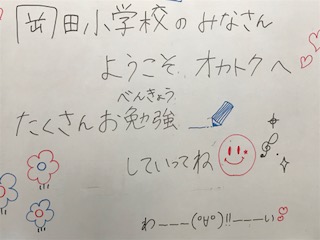 岡田小学校のみなさん
ようこそ オカトクへ
べんきょう
たくさんお勉強
していってね
わーーー(°∀°)!!ーーーい